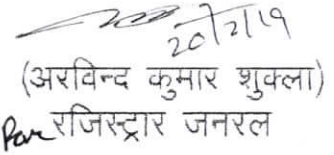 20/2/19
(अरविन्द कुमार शुक्ला)
For रजिस्ट्रार जनरल